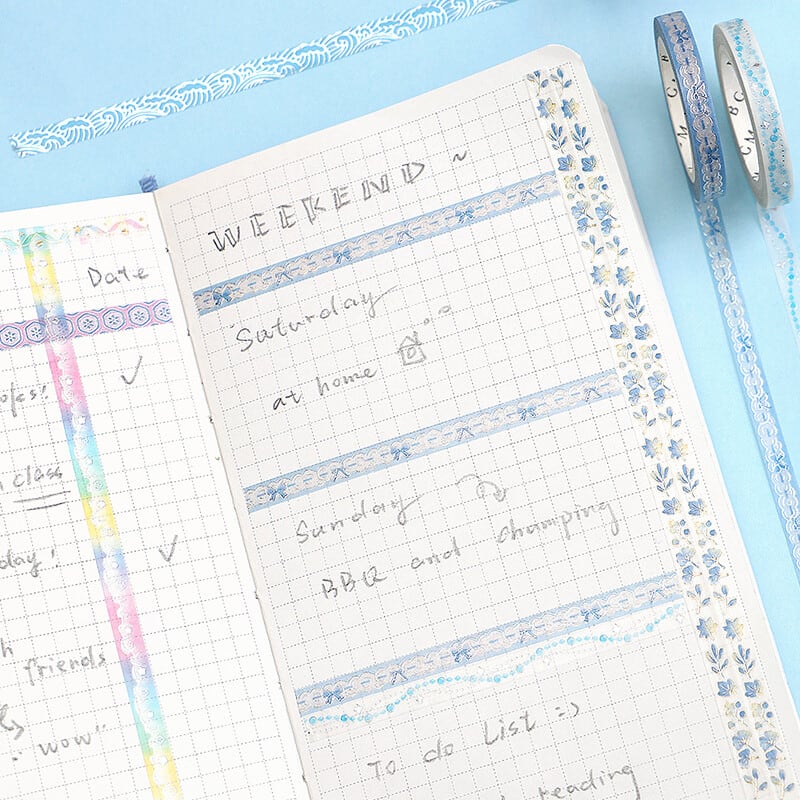 Date
class
day!
friends
wow"
WEEKEND ~
Saturday
at home
Sunday
BBQ and champing
To do List =)
reading
M.C.B
M C B